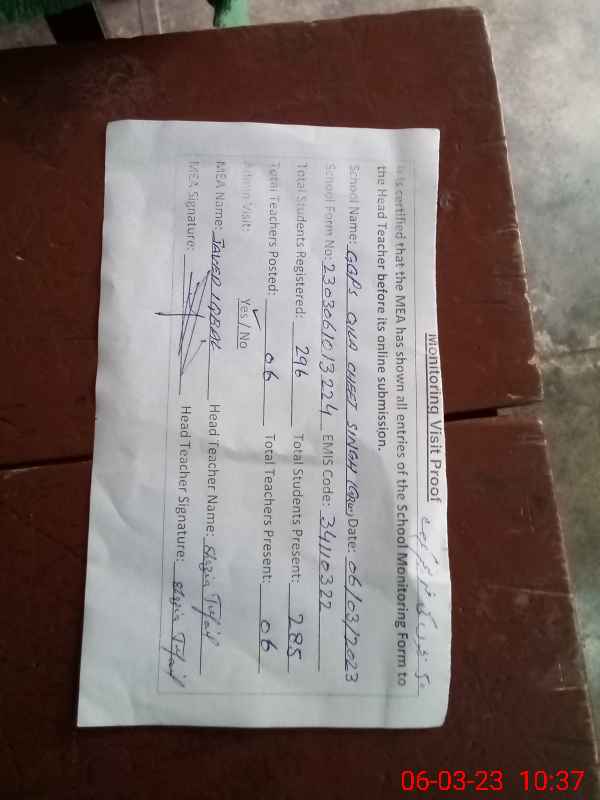 Monitoring Visit Proof
It is certified that the MEA has shown all entries of the School Monitoring Form to
the Head Teacher before its online submission.
School Name: GGPS QILA CHEET SINGH (GRW) Date: 06/03/2023
School Form No: 2303061013224 EMIS Code: 34110322
Total Students Registered: 296 Total Students Present: 285
Total Teachers Posted: 06 Total Teachers Present: 06
Admin Visit: Yes / No
MEA Name: JAVED IQBAL Head Teacher Name: Shazia Tufail
MEA Signature: Head Teacher Signature: Shazia Tufail
06-03-23 10:37